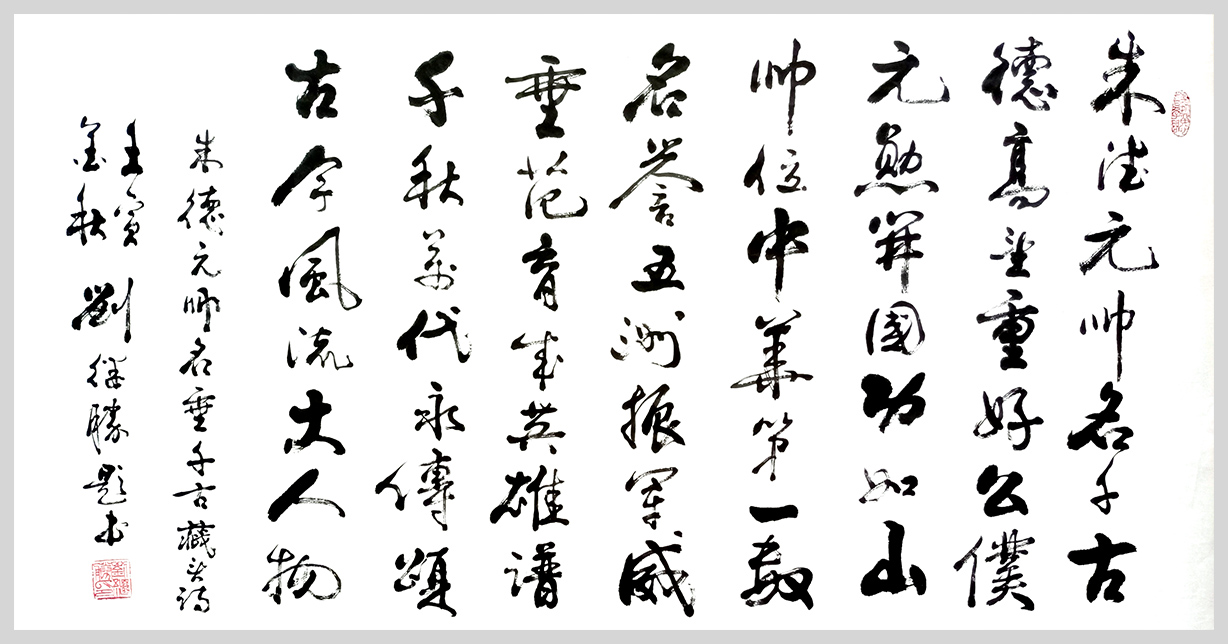 朱德元帅名千古
德高望重好公僕
元勋开國功如山
帅位中華第一
名誉五洲振军威
垂范育成英雄谱
千秋萬代永傳頌
古今風流大人物
朱德元帅名垂千古藏头诗
壬寅
金秋 劉继勝题书